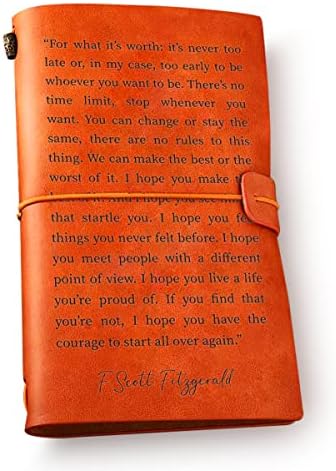 "For what it's worth: it's never too
late or, in my case, too early to be
whoever you want to be. There's no
time limit, stop whenever you
want. You can change or stay the
same, there are no rules to this
thing. We can make the best or the
worst of it. I hope you make
I hope you
that startle you. I hope you
things you never felt before. I hope
you meet people with a different
point of view. I hope you live a life
you're proud of. If you find that
you're not, I hope you have the
courage to start all over again."
F Scott Fitzgerald